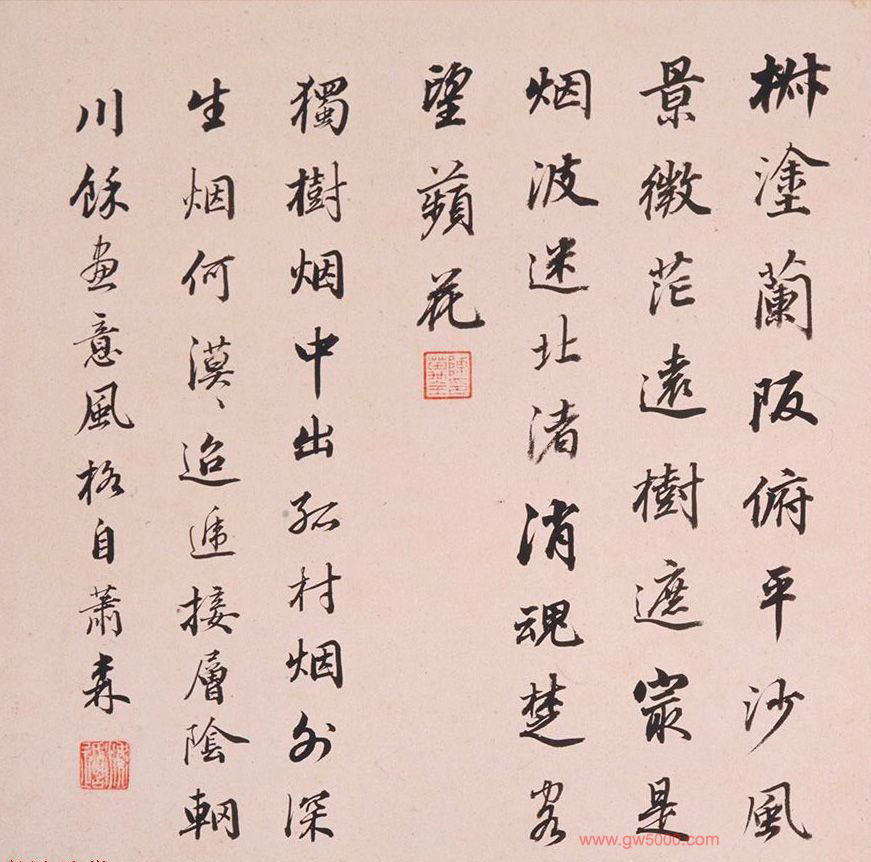 椒塗蘭阪俯平沙風
景微茫遠樹遮最是
烟波迷北渚消魂楚客
望蘋花
獨樹烟中出孤村烟外深
生烟何漠〻迢遞接層陰輞
川餘畫意風格自蕭森
www.gw5000.com